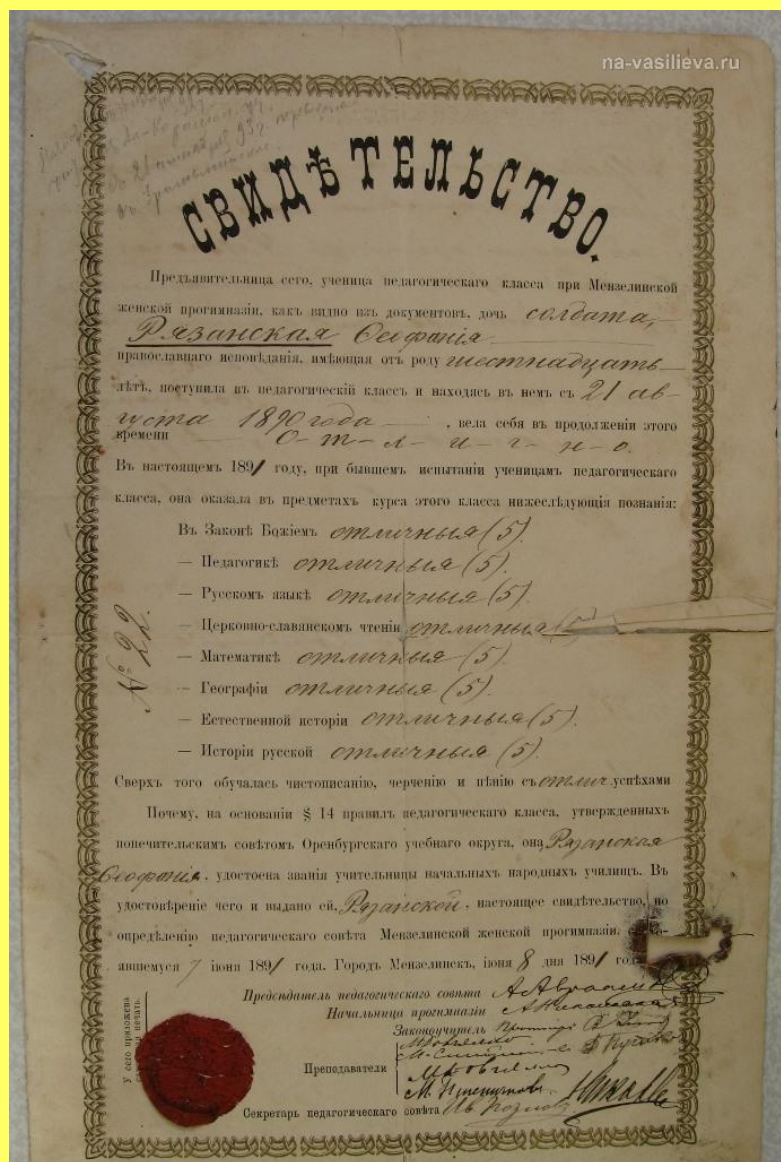 na-vasilieva.ru
СВИДѢТЕЛЬСТВО.
Предъявительница сего, ученица педагогическаго класса при Мензелинской
женской прогимназіи, какъ видно изъ документовъ, дочь солдата,
Рязанская Ѳеофанія
православнаго исповѣданія, имѣющая отъ роду шестнадцать
лѣтъ, поступила въ педагогическій классъ и находясь въ немъ съ 21 ав-
густа 1890 года, вела себя въ продолженіи этого
времени О-т-л-и-ч-н-о.
Въ настоящемъ 1891 году, при бывшемъ испытаніи ученицамъ педагогическаго
класса, она оказала въ предметахъ курса этого класса нижеслѣдующія познанія:
Въ Законѣ Божіемъ отличныя (5).
— Педагогикѣ отличныя (5).
— Русскомъ языкѣ отличныя (5).
— Церковно-славянскомъ чтеніи отличныя (5)
— Математикѣ отличныя (5).
— Географіи отличныя (5).
— Естественной исторіи отличныя (5).
— Исторіи русской отличныя (5).
№ 22.
Сверхъ того обучалась чистописанію, черченію и пѣнію съ отлич. успѣхами
Почему, на основаніи § 14 правилъ педагогическаго класса, утвержденныхъ
попечительскимъ совѣтомъ Оренбургскаго учебнаго округа, она, Рязанская
Ѳеофанія, удостоена званія учительницы начальныхъ народныхъ училищъ. Въ
удостовѣреніе чего и выдано ей, Рязанской, настоящее свидѣтельство, по
опредѣленію педагогическаго совѣта Мензелинской женской прогимназіи,
явшемуся 7 іюня 1891 года. Городъ Мензелинскъ, іюня 8 дня 1891
Предсѣдатель педагогическаго совѣта
Начальница прогимназіи
Законоучитель
Преподаватели
Секретарь педагогическаго совѣта
У сего приложена
печать.